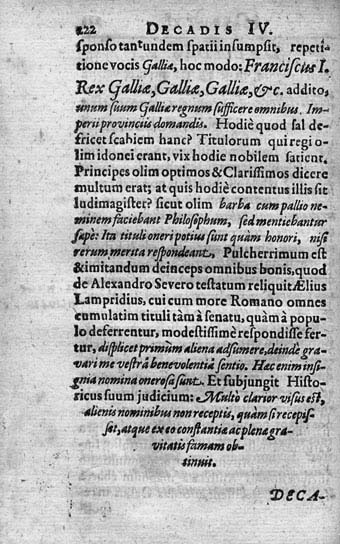 222 DECADIS IV.
sponso tantundem spatii insumpsit, repeti-
tione vocis Galliæ, hoc modo: Franciscus I.
Rex Galliæ, Galliæ, Galliæ, &c. addito,
unum suum Galliæ regnum sufficere omnibus. Im-
perii provinciis domandis. Hodiè quod sal de-
fricet scabiem hanc? Titulorum qui regi o-
lim idonei erant, vix hodie nobilem satient.
Principes olim optimos & Clarissimos dicere
multum erat; at quis hodiè contentus illis sit
ludimagister? sicut olim barba cum pallio ne-
minem faciebant Philosophum, sed mentiebantur
sæpe: Ita tituli oneri potius sunt quàm honori, nisi
rerum merita respondeant. Pulcherrimum est
& imitandum deinceps omnibus bonis, quod
de Alexandro Severo testatum reliquit Ælius
Lampridius, cui cum more Romano omnes
cumulatim tituli tàm à senatu, quàm à popu-
lo deferrentur, modestissimè respondisse fer-
tur, displicet primùm aliena adsumere, deinde gra-
vari me vestrâ benevolentiâ sentio. Hæc enim insi-
gnia nomina onerosa sunt. Et subjungit Histo-
ricus suum judicium: Multò clarior visus est,
alienis nominibus non receptis, quàm si recepis-
set, atque ex eo constantiæ ac plenæ gra-
vitatis famam ob-
tinuit.
DECA-